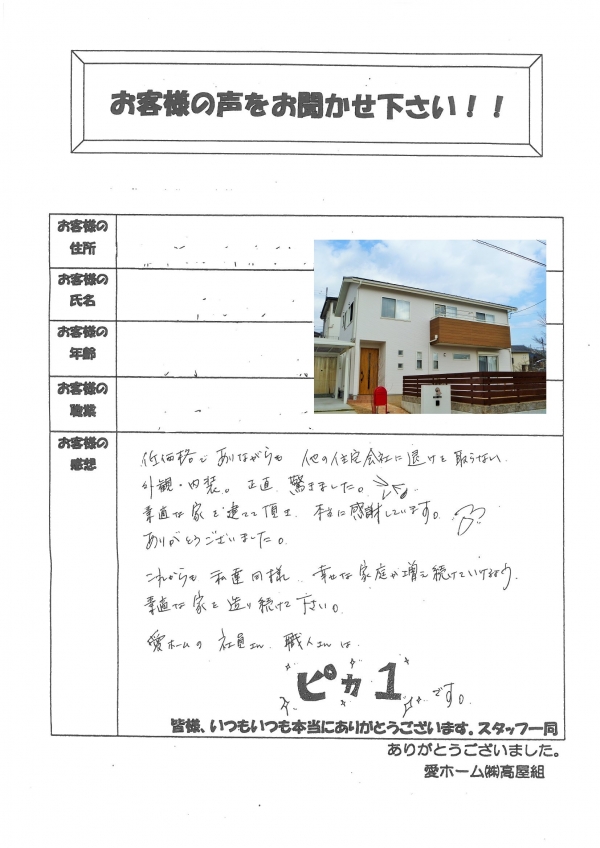 お客様の声をお聞かせ下さい！！
お客様の
住所
お客様の
氏名
お客様の
年齢
お客様の
職業
お客様の
感想
低価格でありながらも 他の住宅会社に退けを取らない
外観・内装。正直 驚きました。
素直な家を建てて頂き 本当に感謝しています。
ありがとうございました。
これからも 私達同様 幸せな家庭が増え続けていけるよう
素直な家を造り続けて下さい。
愛ホームの 社員さん 職人さんは
ピカ1です。
皆様、いつもいつも本当にありがとうございます。スタッフ一同
ありがとうございました。
愛ホーム㈱高屋組